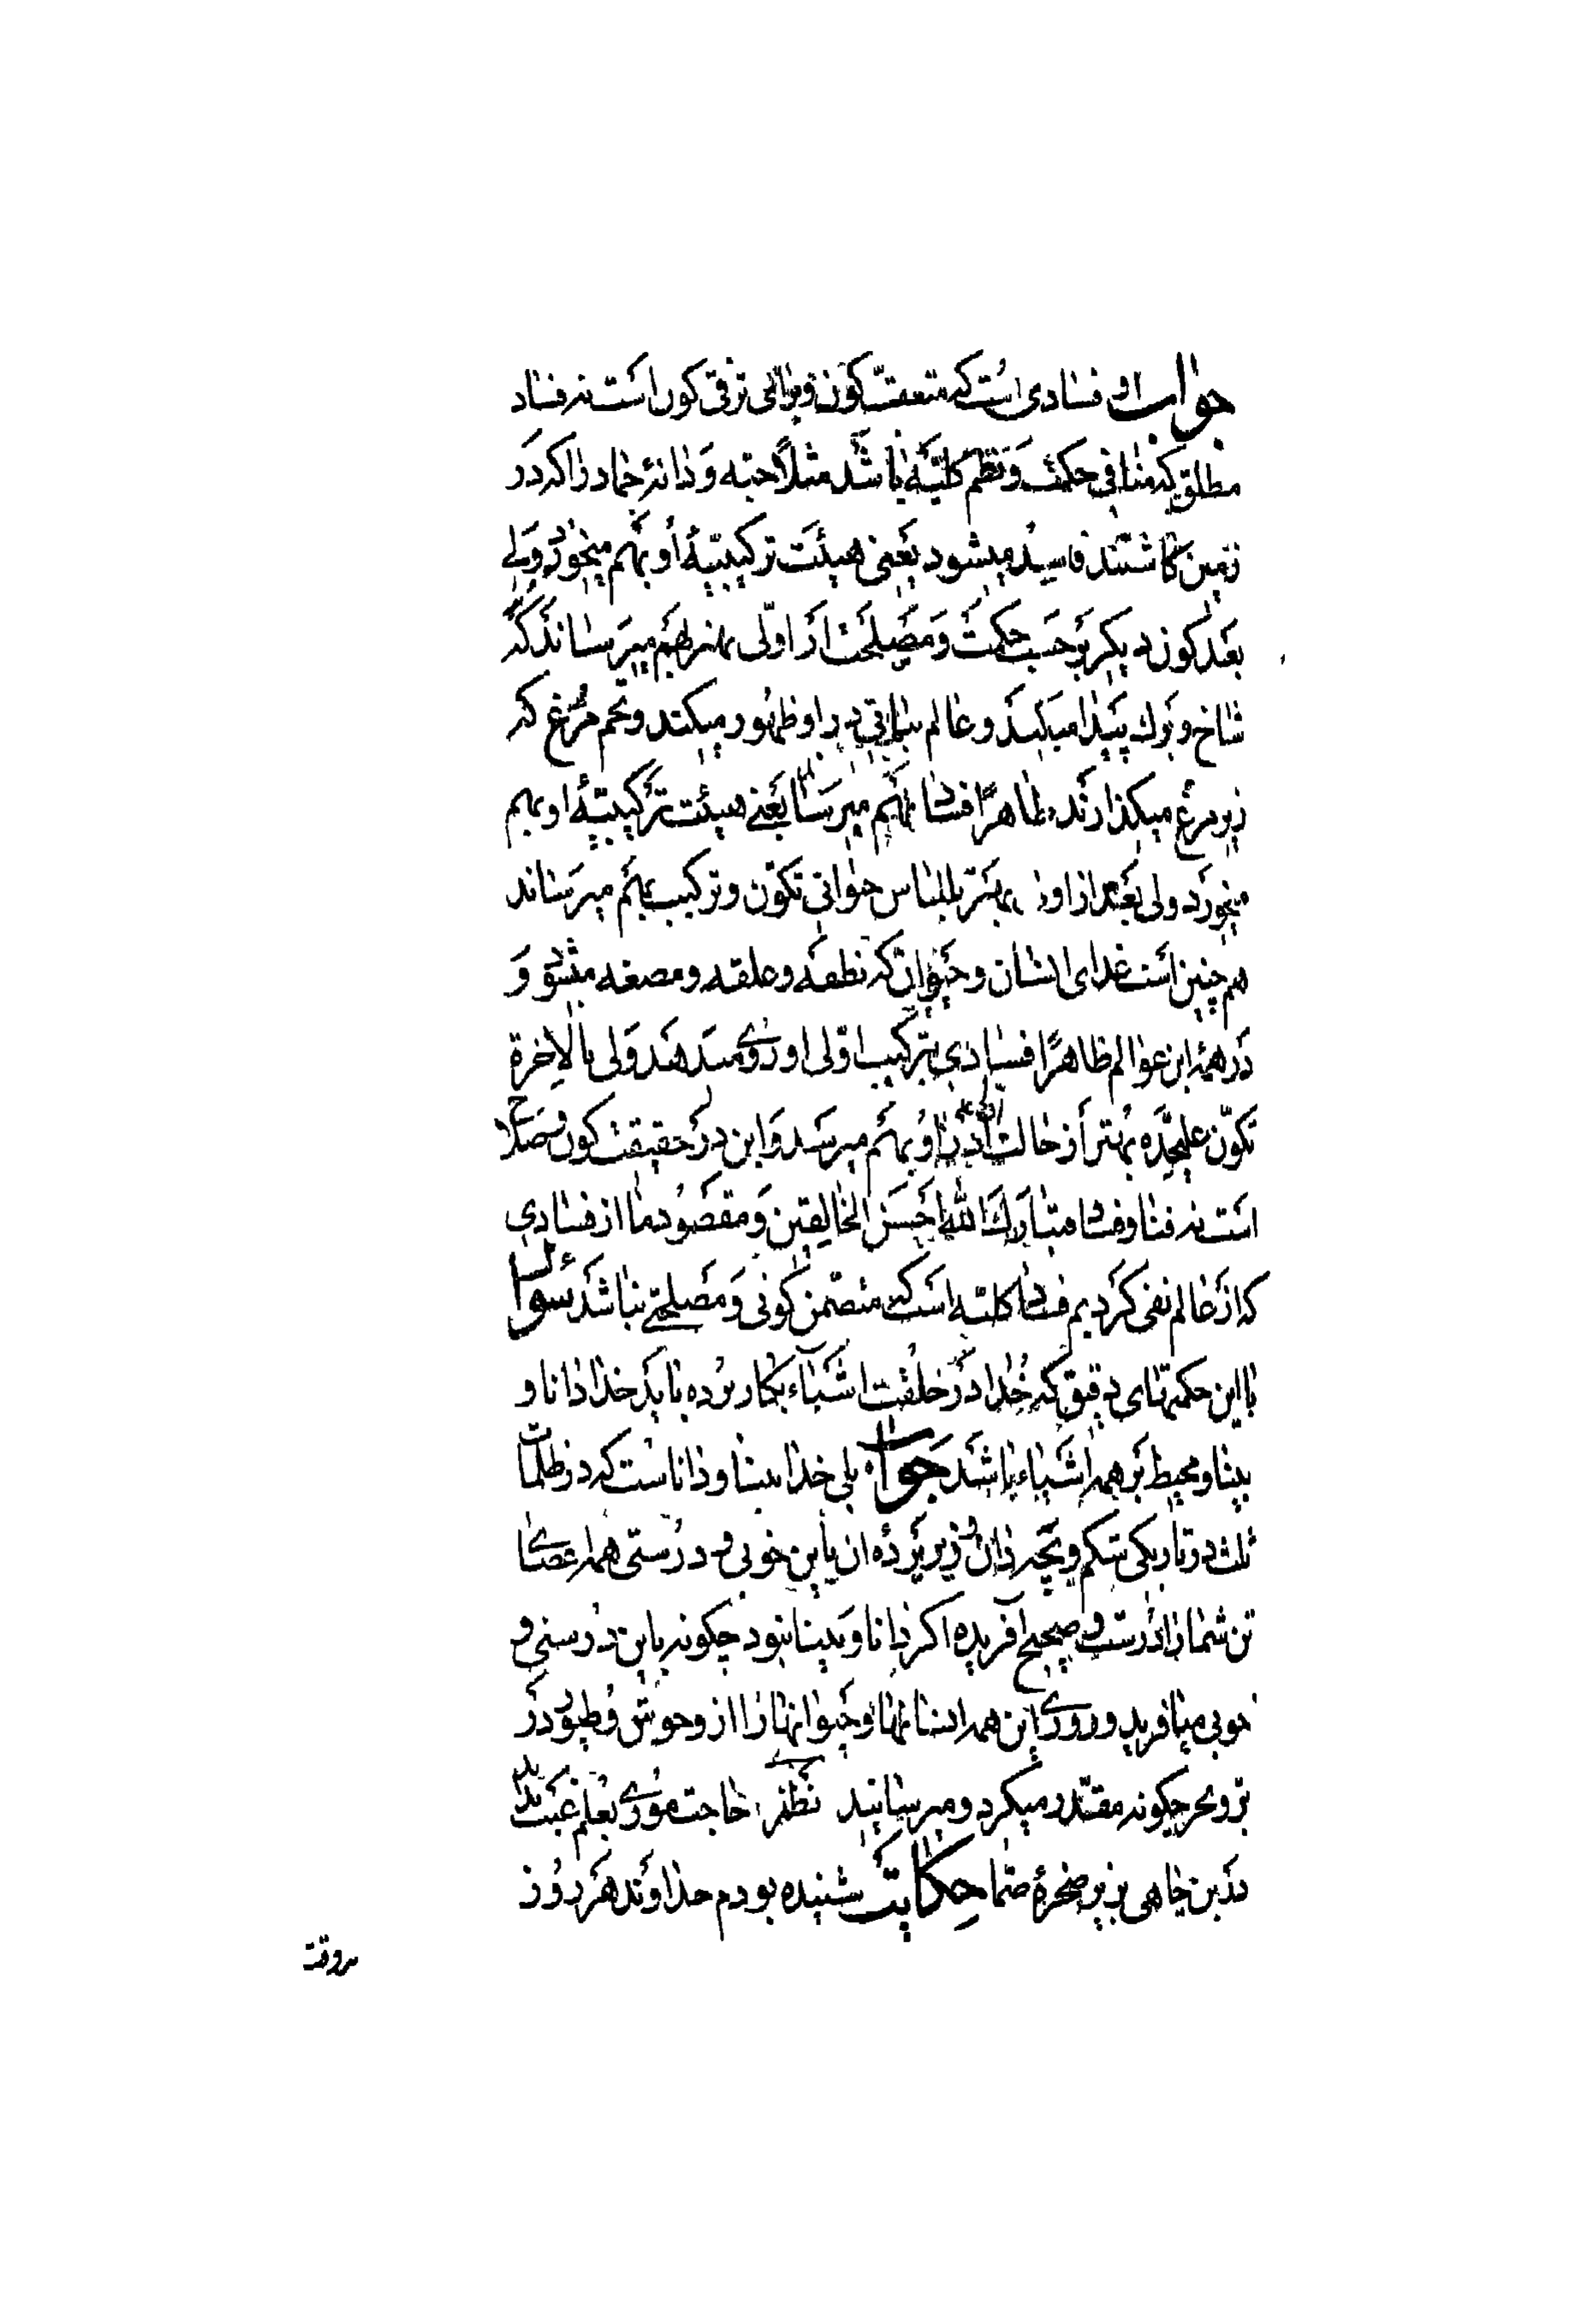 جواب او فسادی است که متعقب کون و برای ترقی کون است نه فساد
مطلق که منافی حکمت و نظم کلیّه باشد مثلاً حبّه و دانهٔ جماد را که در
زمین کاشتند فاسد میشود یعنی هیئت ترکیبیّهٔ او بهم میخورد ولی
بعد کون دیگر بر حسب حکمت و مصلحت از اوّلی بهتر بهم میرساند که
شاخ و برك پیدا میکند و عالم نباتی در او ظهور میکند و تخم مرغ که
زیر مرغ میکذارند ظاهراً فساد بهم میرساند یعنی هیئت ترکیبیّهٔ او بهم
میخورد ولی بعد از او بهتر بلباس حیوانی تکوّن و ترکیب بهم میرساند
هم چنین است غذای انسان و حیوان که نطفه و علقه و مضغه میشود و
در همهٔ این عوالم ظاهراً فسادی بترکیب اوّلی او روی میدهد ولی بالاخرة
تکوّن علیحدّه بهتر از حالت اوّلی در او بهم میرسد و این در حقیقت کون و صلاح
است نه فنا و فساد فتبارك الله احسن الخالقین و مقصود ما از فسادی
که از عالم نفی کردیم فساد کلیّه است که متضمّن کونی و مصلحتی نباشد سؤال
با این حکمتهای دقیق که خدا در خلقت اشیآء بکار برده باید خدا دانا و
بینا و محیط بر همه اشیاء باشد جواب بلی خدا بینا و داناست که در ظلمات
ثلث در تاریکی شکم و بچه دان و زیر پرده ان باین خوبی و درستی همه اعضای
تن شما را درست و صحیح آفریده اکر دانا و بینا نبود چکونه باین درستی و
خوبی میافرید و روزی این همه انسانها و حیوانها را از وحوش و طیور در
بر و بحر چکونه مقدّر میکرد و میرسانید نظم حاجت موری بعلم غیب بداند
در بن چاهی بزیر صخرهٔ صمّا حکایت شنیده بودم خداوند هر روز